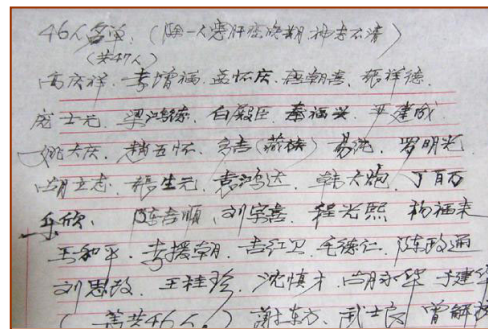 46人名单:(除一人患肝癌晚期,神志不清)
(共47人)
高庆祥、李增福、孟怀庆、唐朝喜、张祥德
庞士元、梁鸿德、白殿臣、秦福兴、尹建成
姚大庆、赵五怀、(燕楠)易纯、罗明光
胡立志、张生元、袁鸿达、韩大炮、丁百万
乐欣、陈吉顺、刘宝喜、程光熙、杨福来
王和平、李援朝、吉红卫、毛德仁、陈政通
刘思政、王桂珍、沈慎才、胡永华、于建华
(若共46人。)谢东方、武士良、曾解